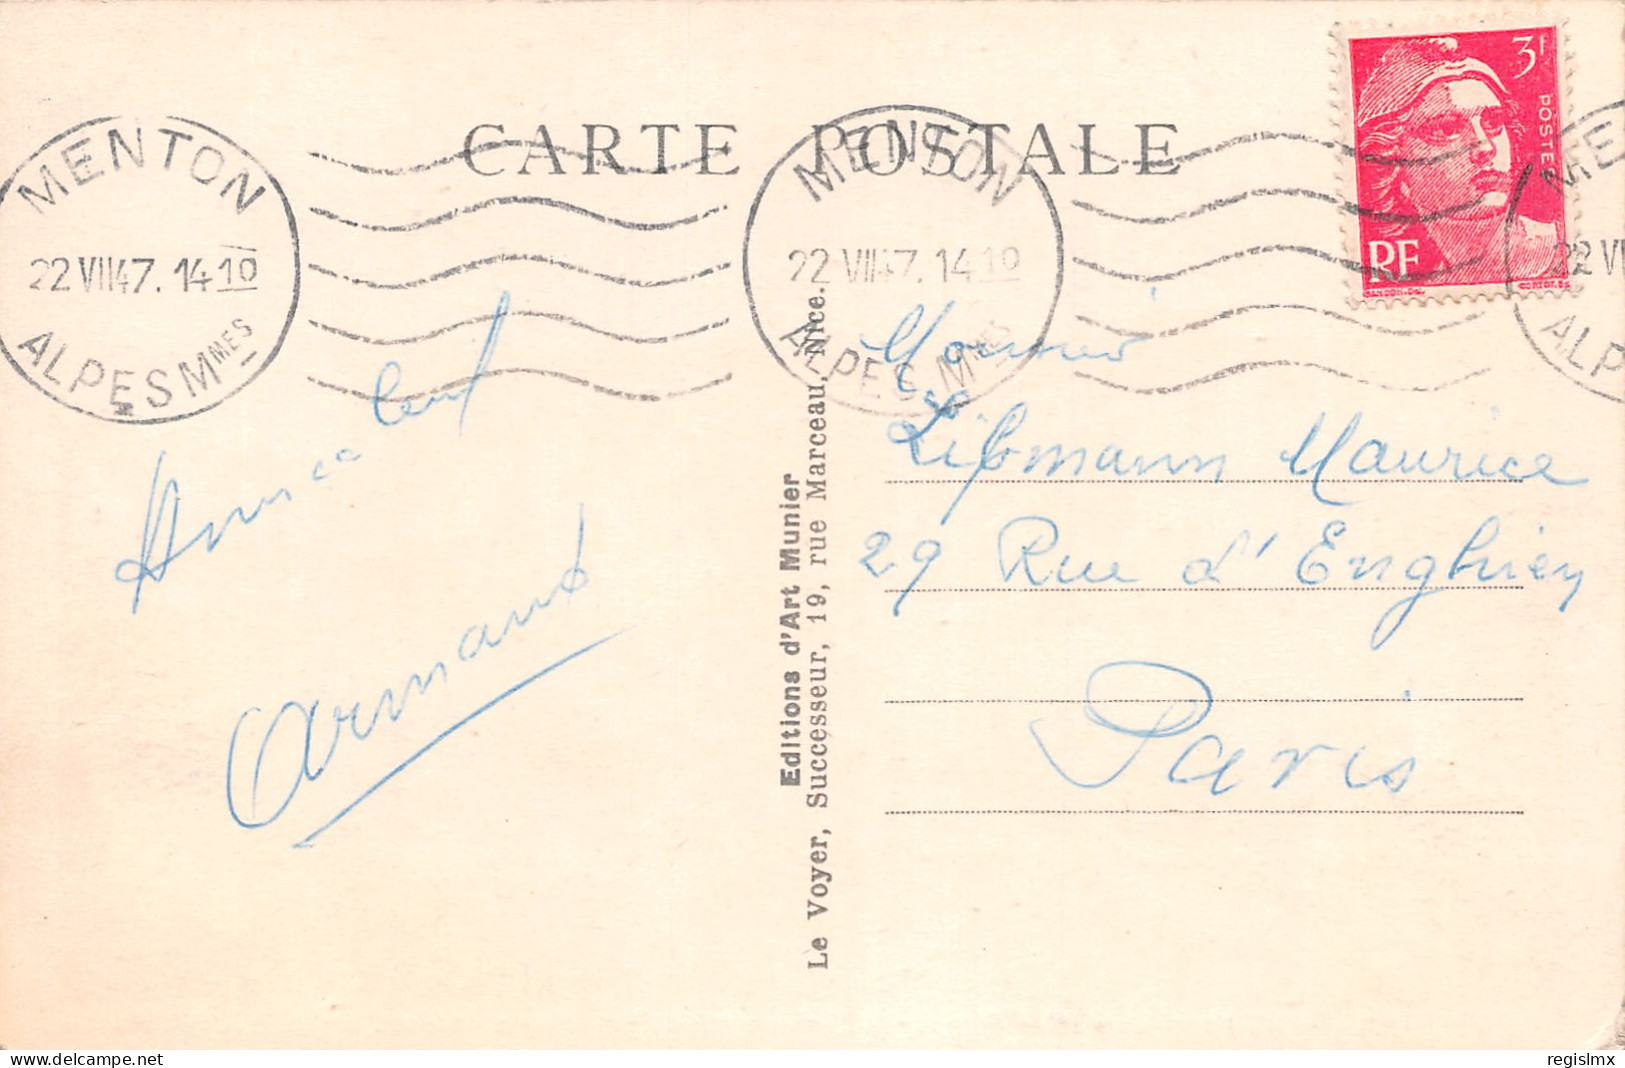 CARTE POSTALE
MENTON
22 VII 47. 14 10
ALPES Mmes
MENTON
22 VII 47. 14 10
ALPES Mmes
ME
22 VI
ALP
3F
POSTES
RF
GANDON. DEL.
Amicalement
Armand
Editions d'Art Munier
Le Voyer, Successeur, 19, rue Marceau, Nice.
Lipmann Maurice
29 Rue d'Enghien
Paris
regislmx